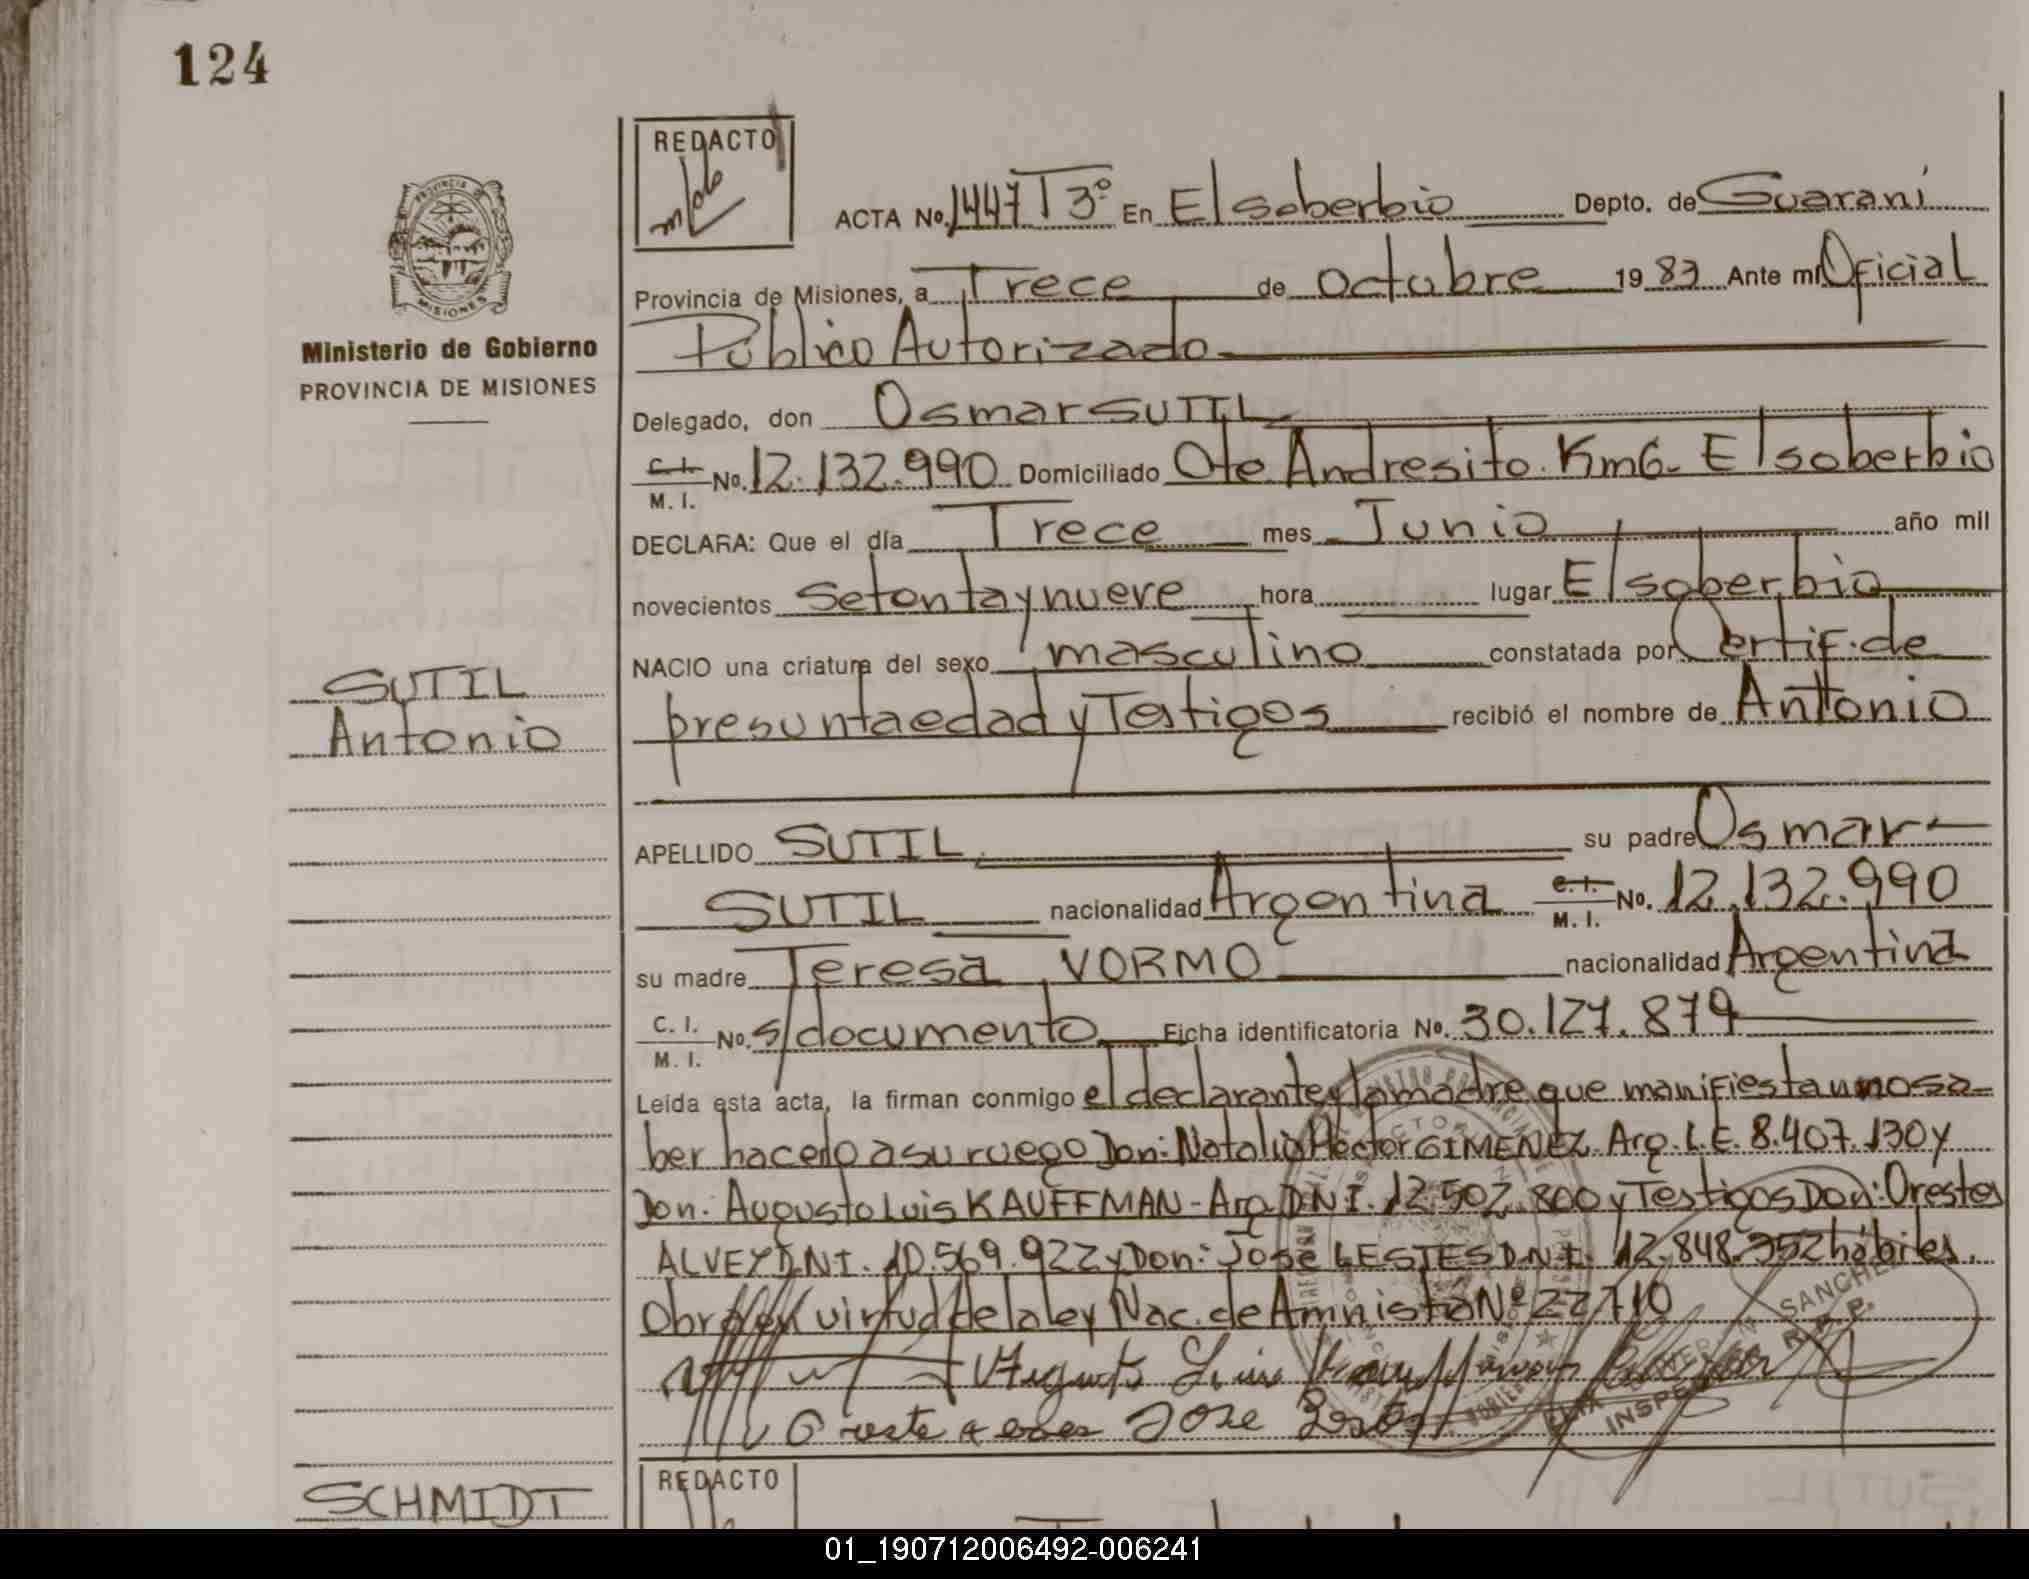 124
REDACTO
ACTA No. 1447 T 3º En El soberbio Depto. de Guaraní
Provincia de Misiones, a Trece de octubre 1983 Ante mí Oficial
Público Autorizado
Ministerio de Gobierno
PROVINCIA DE MISIONES
Delegado, don Osmar SUTIL
C. I. / M. I. No. 12.132.990 Domiciliado Cte. Andresito. Km6- El soberbio
DECLARA: Que el día Trece mes Junio año mil
novecientos setenta y nueve hora lugar El soberbio
NACIO una criatura del sexo masculino constatada por Certif. de
SUTIL
Antonio
presunta edad y Testigos recibió el nombre de Antonio
APELLIDO SUTIL su padre Osmar
SUTIL nacionalidad Argentina C. I. / M. I. No. 12.132.990
su madre Teresa VORMO nacionalidad Argentina
C. I. / M. I. No. s/documento Ficha identificatoria No. 30.127.879
Leída esta acta, la firman conmigo el declarante y la madre que manifiesta no sa-
ber hacerlo a su ruego Don: Natalio Hector GIMENEZ Arg. L.E. 8.407.130 y
Don: Augusto Luis KAUFFMAN - Arg. D.N.I. 12.502.800 y Testigos Don: Orestes
ALVEY D.N.I. 10.569.922 y Don: José LESTES D.N.I. 12.848.352 hábiles.
Obra en virtud de la ley Nac. de Amnistía Nº 22710
Augusto Luis Kauffman
Jose
SANCHEZ
INSPE
REDACTO
SCHMIDT
01_190712006492-006241